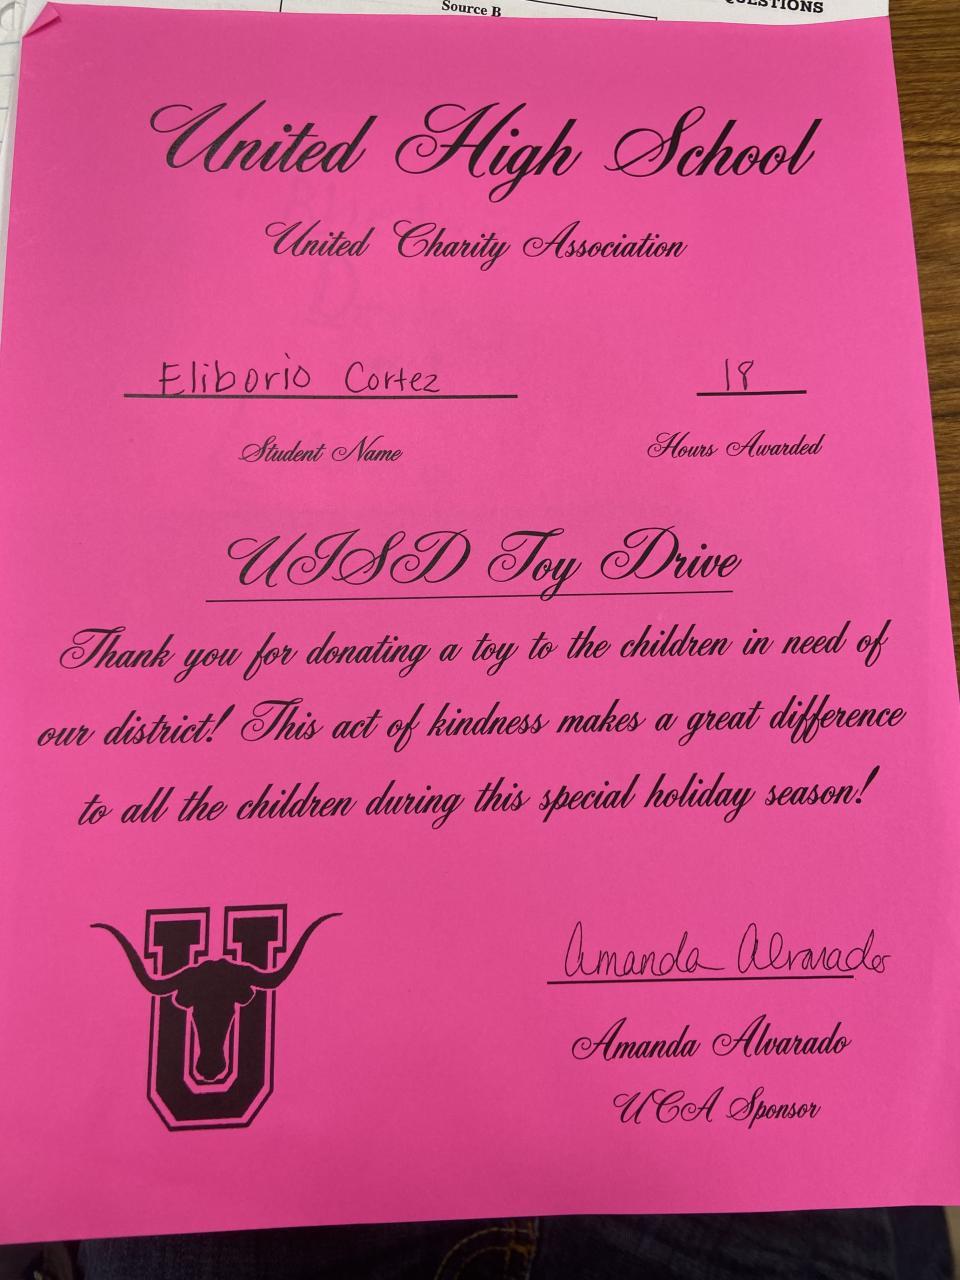 Source B
QUESTIONS
United High School
United Charity Association
Eliborio Cortez 18
Student Name Hours Awarded
UISD Toy Drive
Thank you for donating a toy to the children in need of
our district! This act of kindness makes a great difference
to all the children during this special holiday season!
U
Amanda Alvarado
Amanda Alvarado
UCA Sponsor